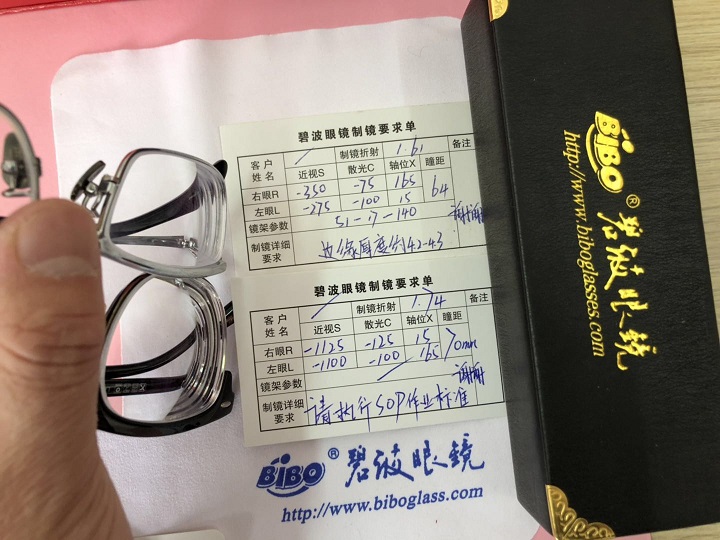 碧波眼镜制镜要求单
客户姓名 制镜折射 1.61 备注
近视S 散光C 轴位X 瞳距
右眼R -350 -75 165 64
左眼L -275 -100 15
镜架参数 51-17-140 谢谢
制镜详细要求 边缘厚度约4.2-4.3
碧波眼镜制镜要求单
客户姓名 制镜折射 1.74 备注
近视S 散光C 轴位X 瞳距
右眼R -1125 -125 15 70mm
左眼L -1100 -100 165
镜架参数 谢谢
制镜详细要求 请执行SOP作业标准
BiBO® 碧波眼镜
http://www.biboglass.com
BiBO® 碧波眼镜
http://www.biboglasses.com